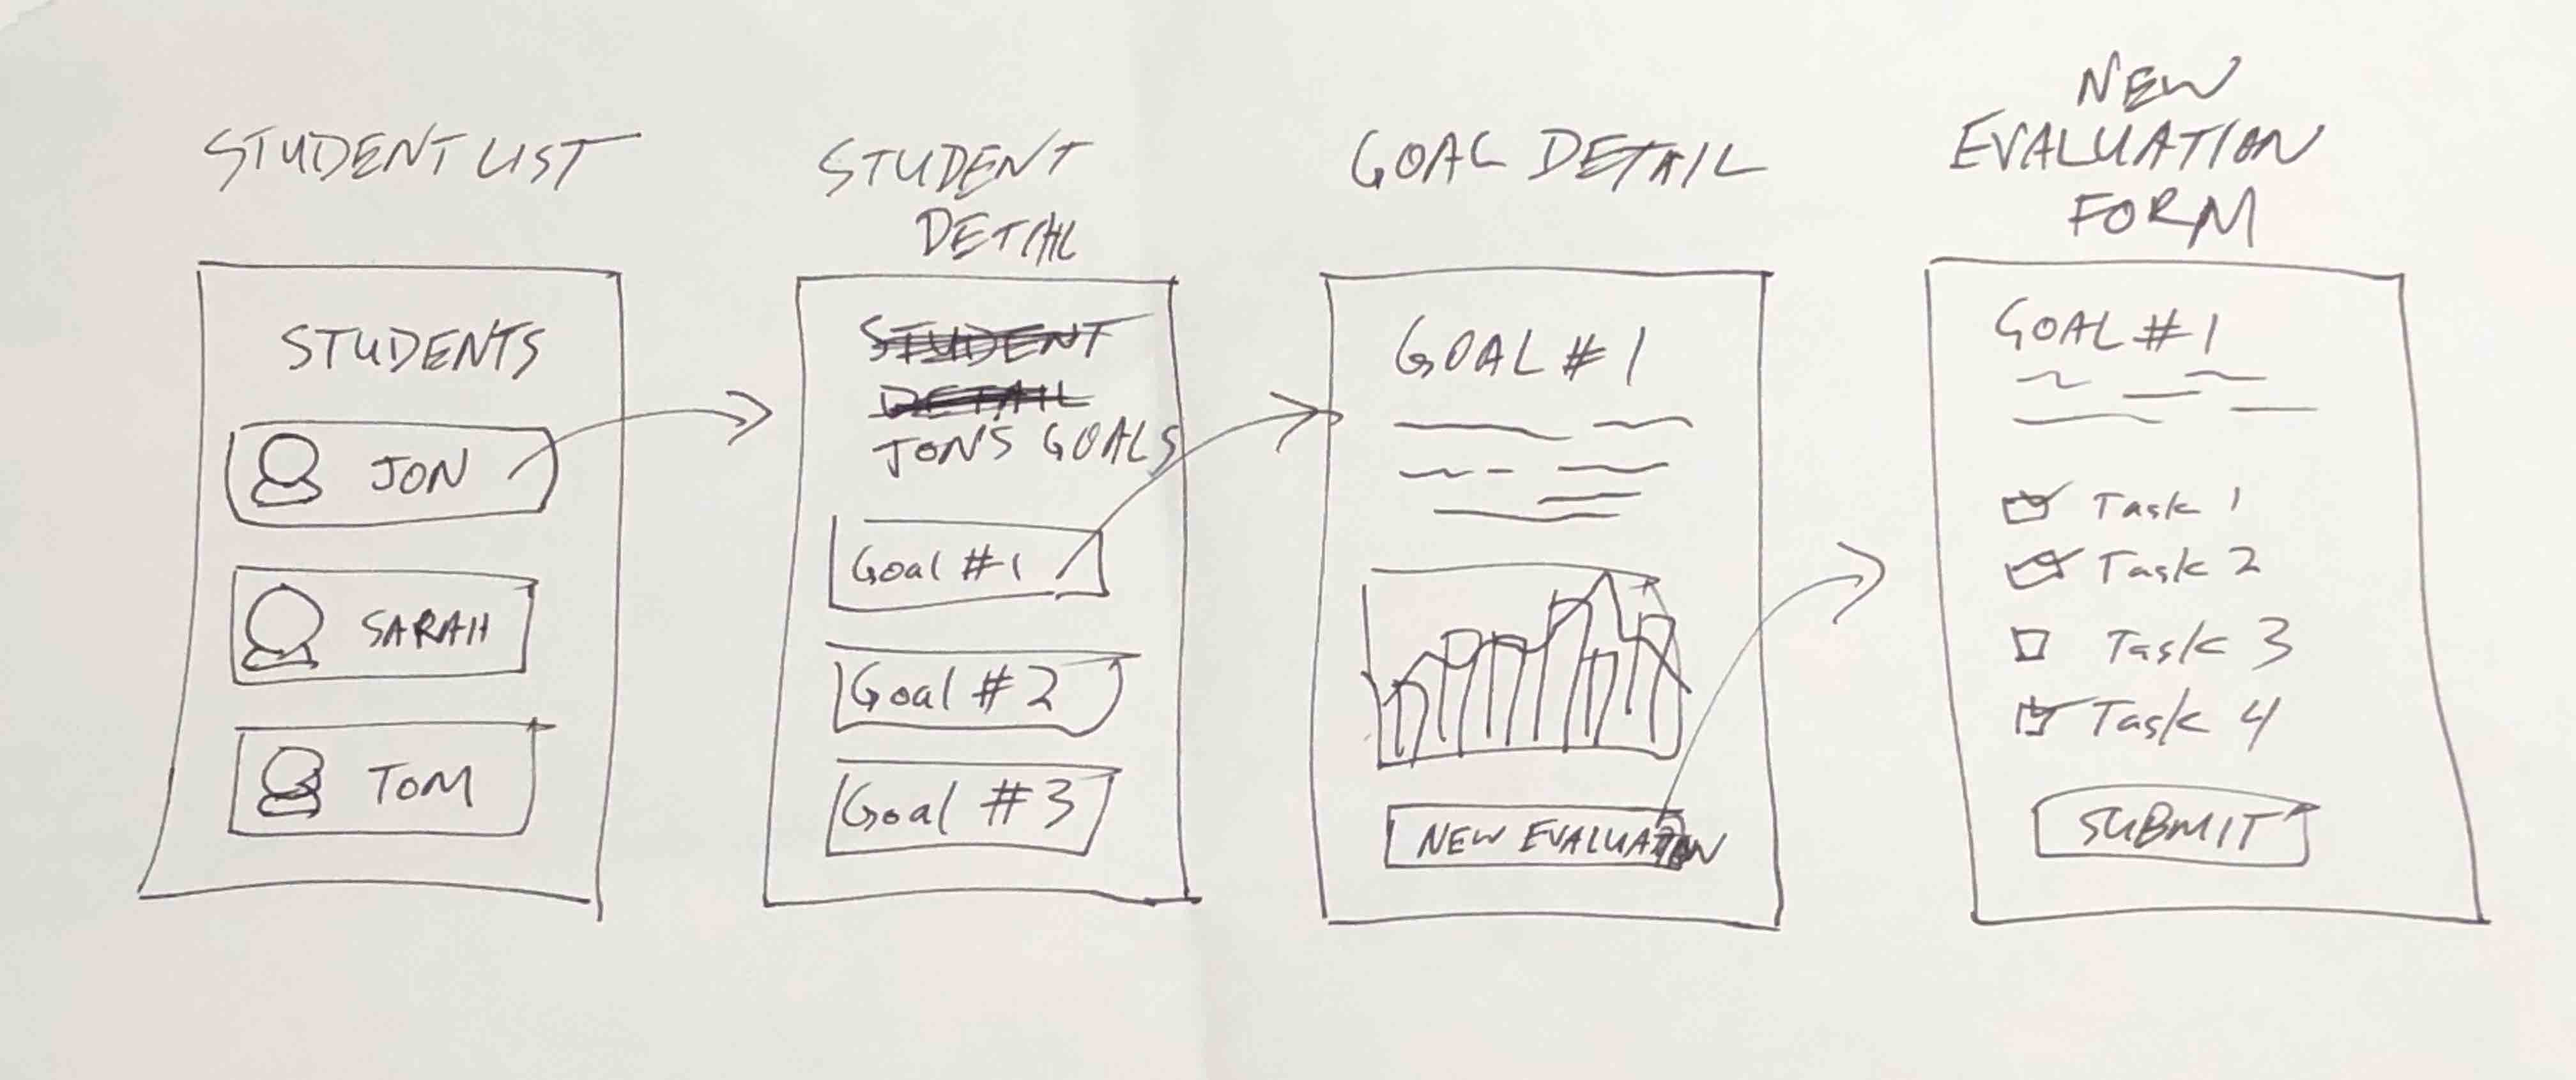 STUDENT LIST
STUDENTS
JON
SARAH
TOM
STUDENT
DETAIL
STUDENT
DETAIL
JON'S GOALS
Goal #1
Goal #2
Goal #3
GOAL DETAIL
GOAL #1
NEW EVALUATION
NEW
EVALUATION
FORM
GOAL #1
Task 1
Task 2
Task 3
Task 4
SUBMIT